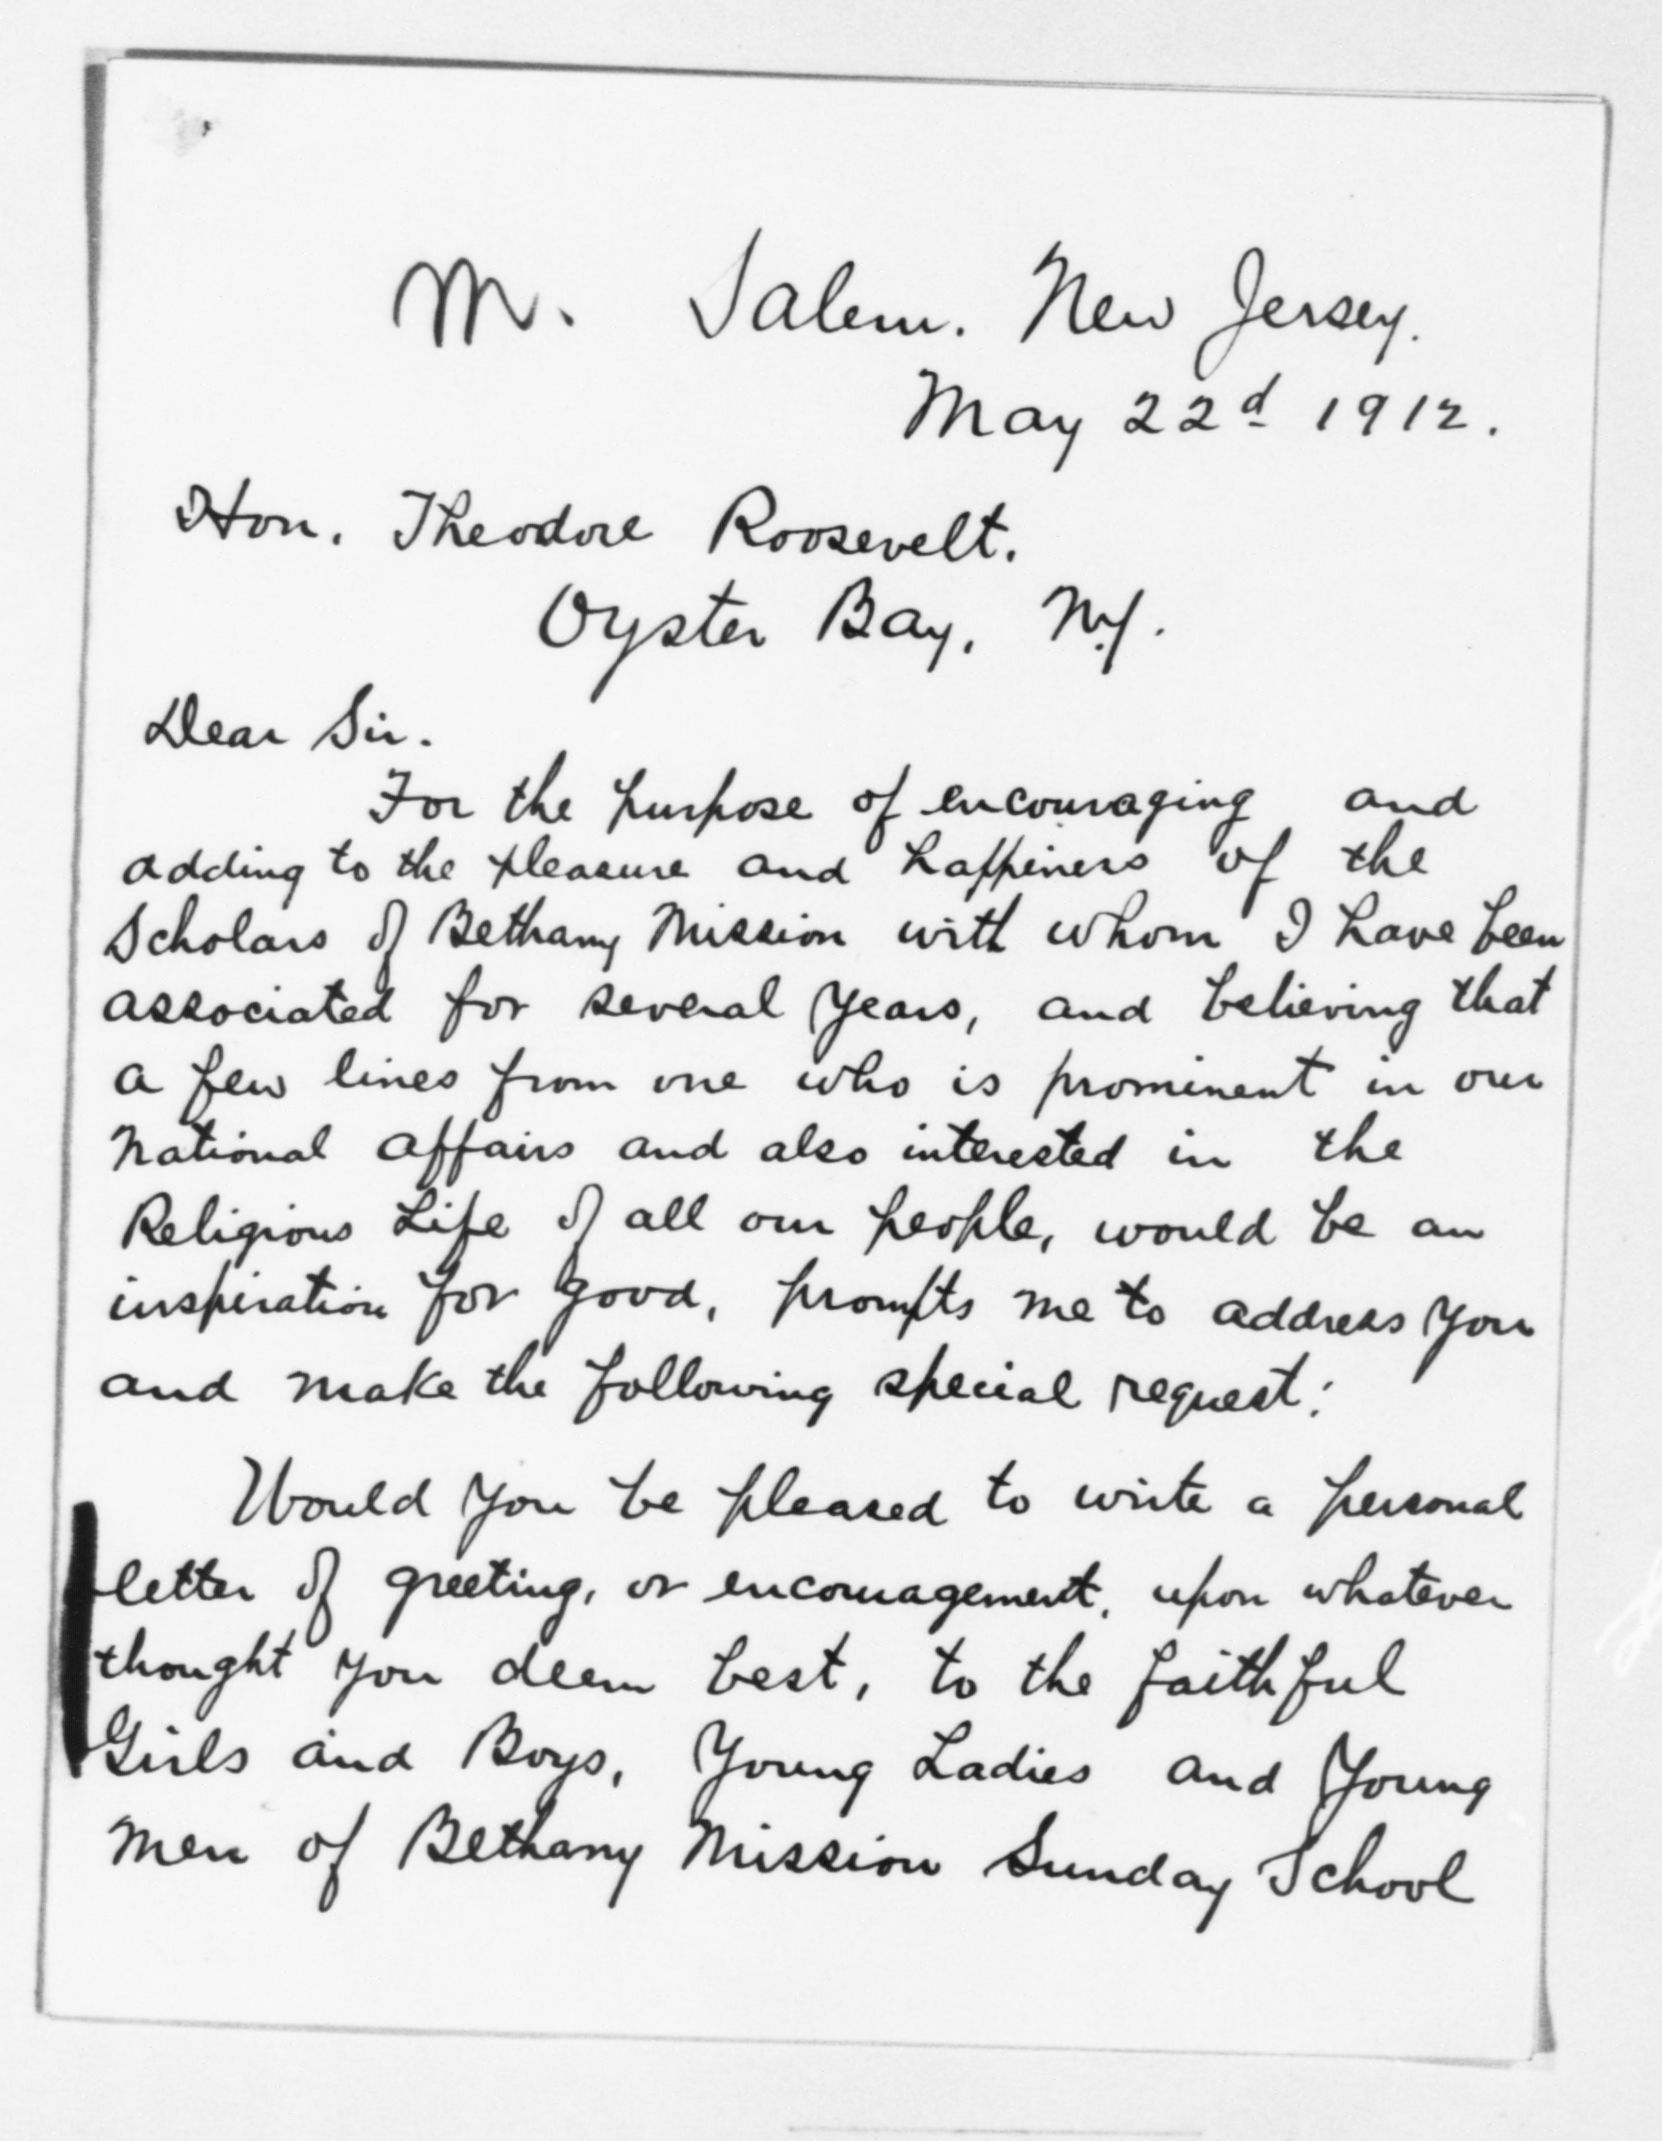 M. Salem. New Jersey.
May 22d 1912.
Hon. Theodore Roosevelt.
Oyster Bay, N.Y.
Dear Sir.
For the purpose of encouraging and
adding to the pleasure and happiness of the
Scholars of Bethany Mission with whom I have been
associated for several years, and believing that
a few lines from one who is prominent in our
National affairs and also interested in the
Religious Life of all our people, would be an
inspiration for good, prompts me to address you
and make the following special request:
Would you be pleased to write a personal
letter of greeting, or encouragement, upon whatever
thought you deem best, to the faithful
Girls and Boys, Young Ladies and Young
Men of Bethany Mission Sunday School